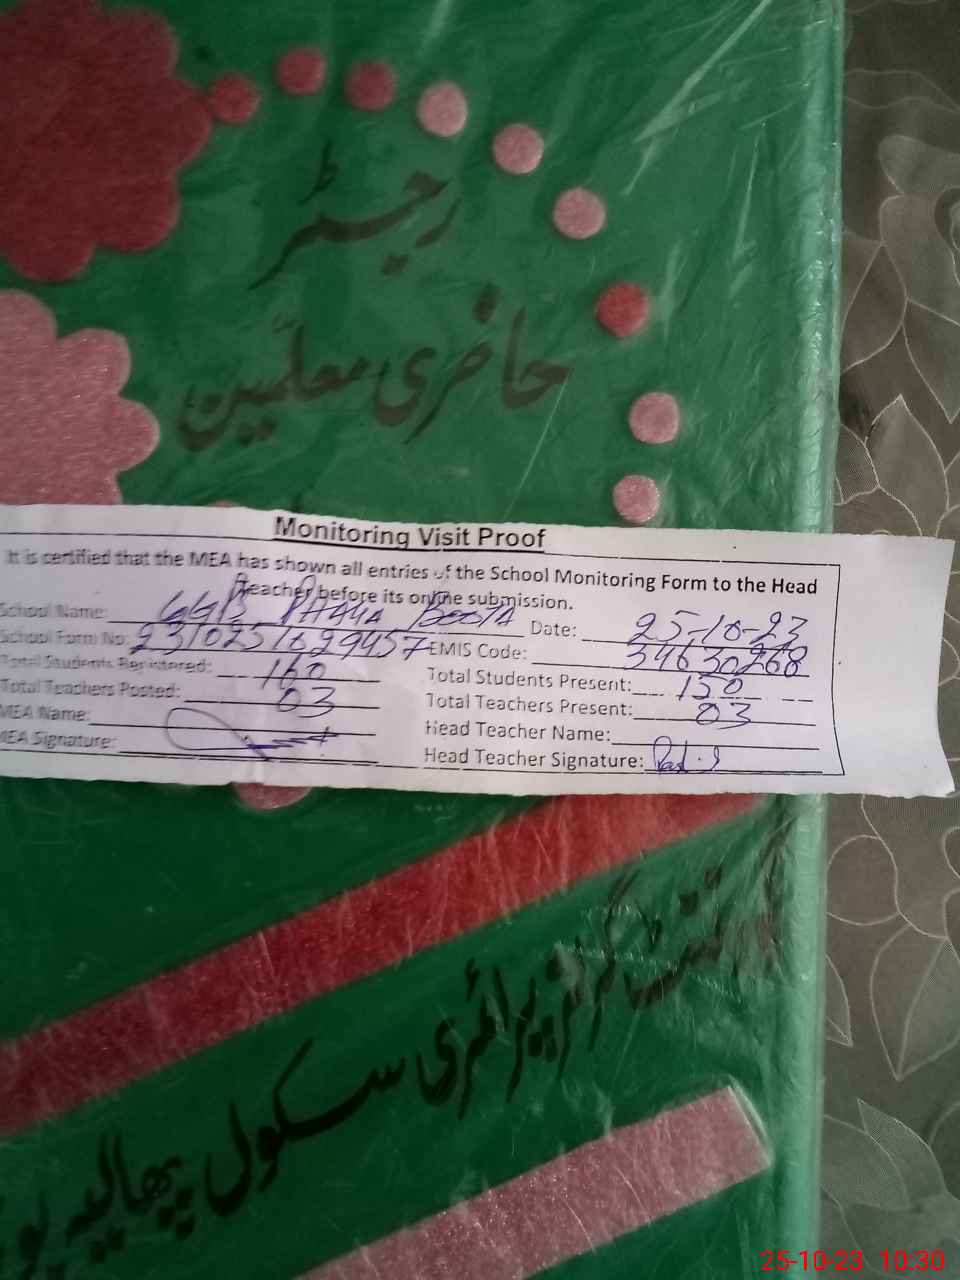 رجسٹر
حاضری معلمین
Monitoring Visit Proof
It is certified that the MEA has shown all entries of the School Monitoring Form to the Head
Teacher before its online submission.
School Name: GGPS Date: 25-10-23
School Form No: 2310251629457 EMIS Code: 34630268
Total Students Registered: 160 Total Students Present: 150
Total Teachers Posted: 03 Total Teachers Present: 03
MEA Name: Head Teacher Name:
MEA Signature: Head Teacher Signature:
گورنمنٹ گرلز پرائمری سکول پھالیہ
25-10-23 10:30